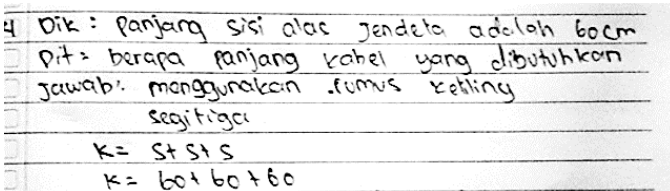 4 Dik : Panjang sisi alas Jendela adalah 60cm
Dit : berapa panjang kabel yang dibutuhkan
Jawab : menggunakan rumus keliling
segitiga
K = S + S + S
K = 60 + 60 + 60